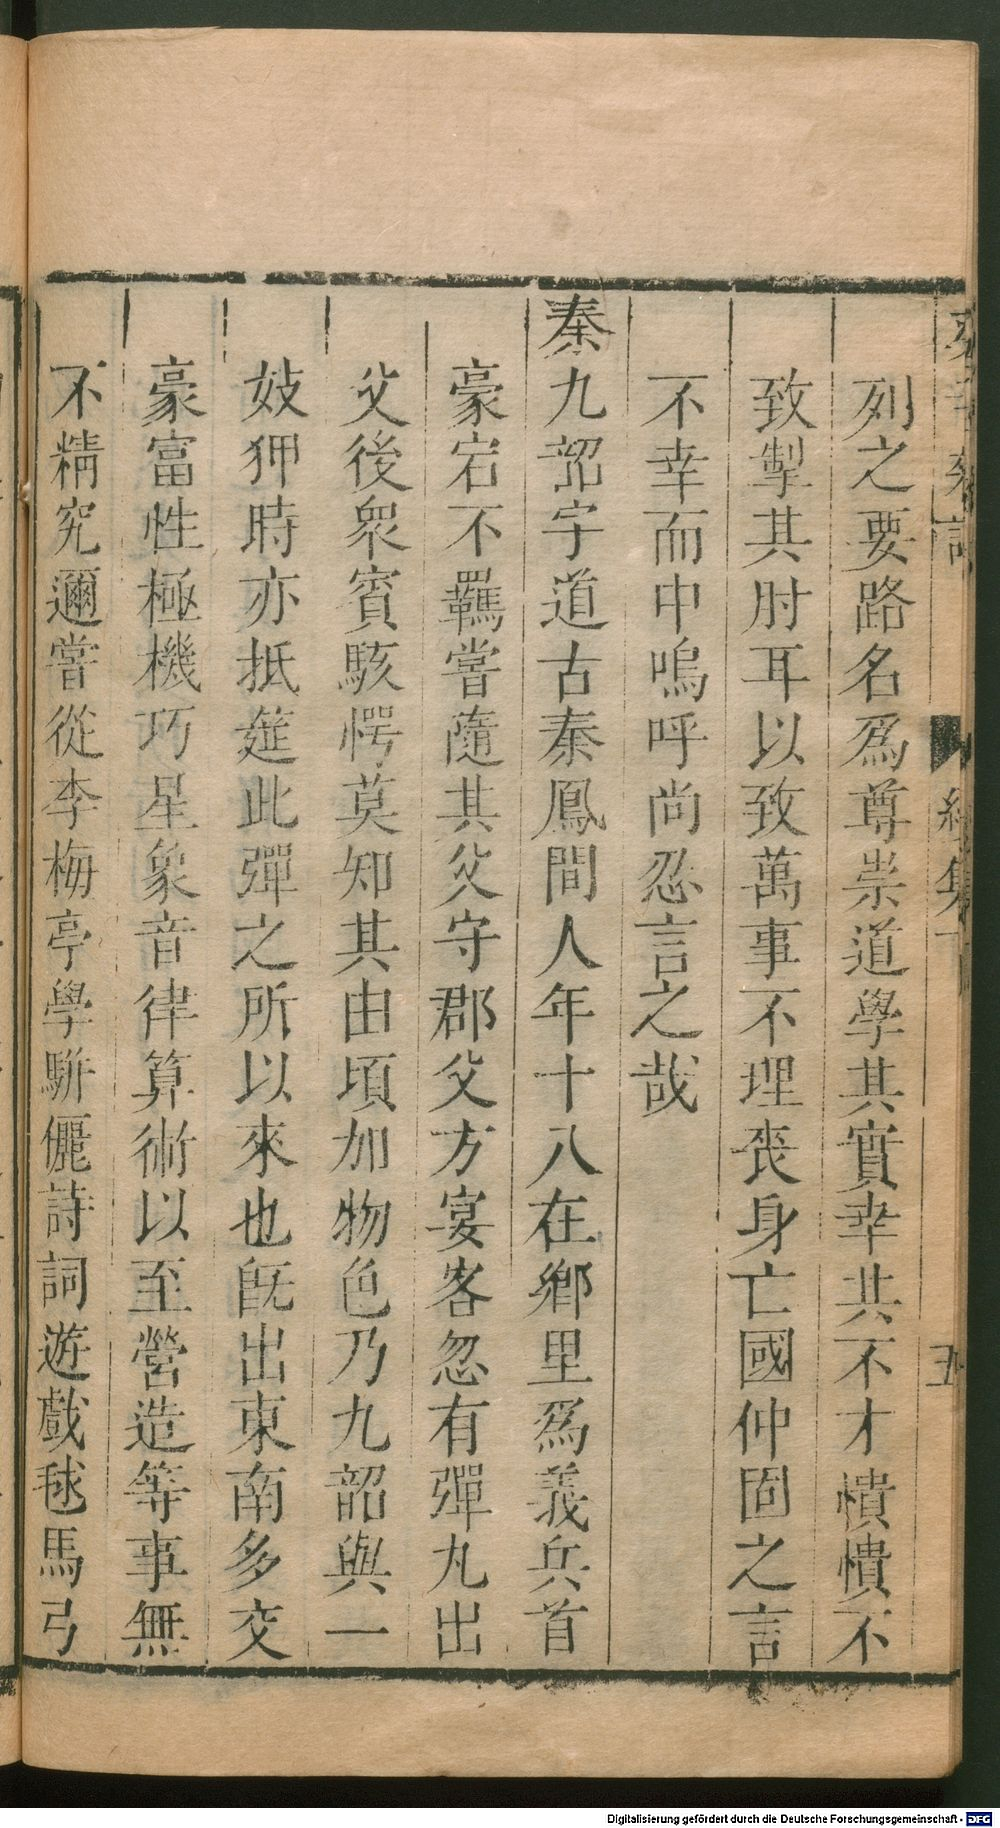 列之要路名爲尊崇道學其實幸其不才憒憒不
致掣其肘耳以致萬事不理喪身亡國仲固之言
不幸而中嗚呼尚忍言之哉
秦九韶字道古秦鳳間人年十八在鄉里爲義兵首
豪宕不羈嘗隨其父守郡父方宴客忽有彈丸出
父後衆賓駭愕莫知其由頃加物色乃九韶與一
妓狎時亦抵筵此彈之所以來也旣出東南多交
豪富性極機巧星象音律算術以至營造等事無
不精究邇嘗從李梅亭學駢儷詩詞遊戲毬馬弓
Digitalisierung gefördert durch die Deutsche Forschungsgemeinschaft - DFG